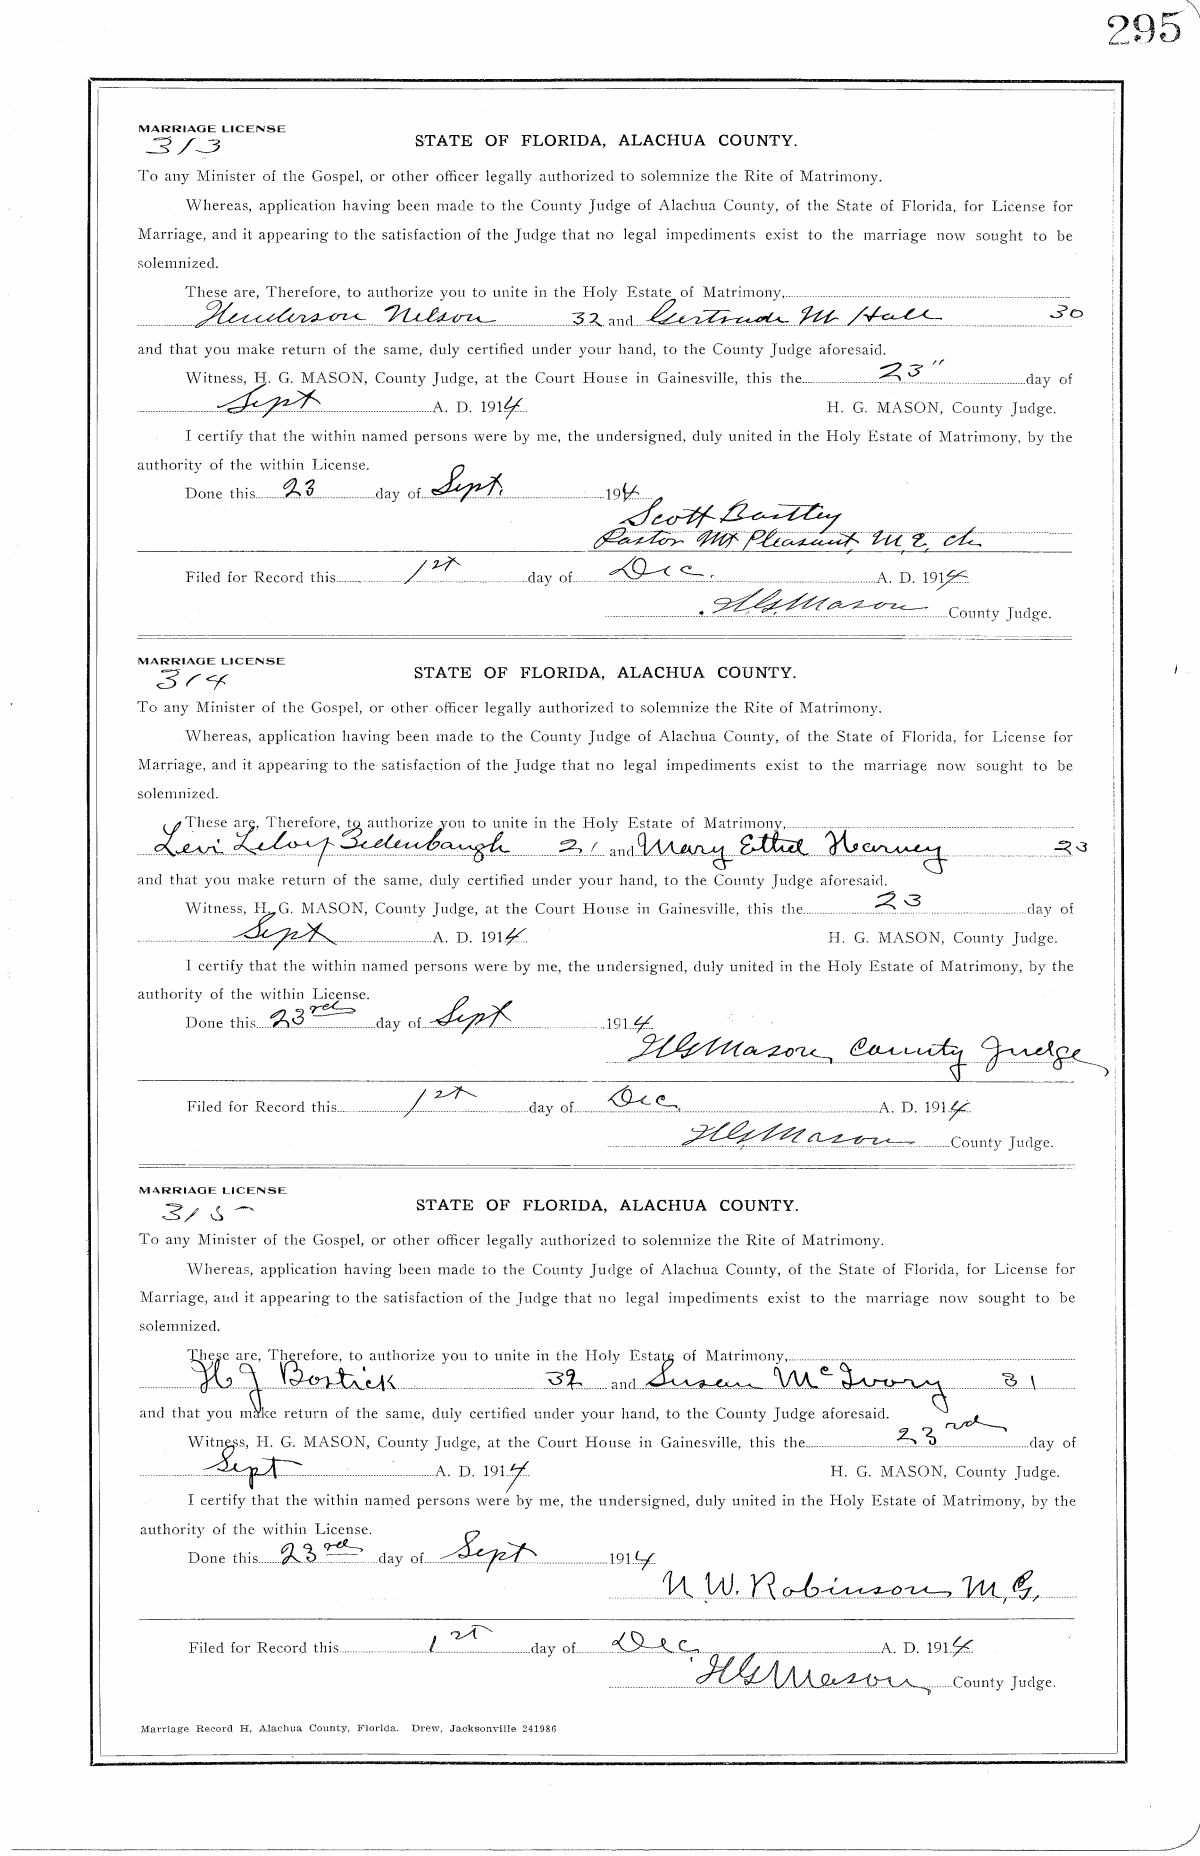 295
MARRIAGE LICENSE
313
STATE OF FLORIDA, ALACHUA COUNTY.
To any Minister of the Gospel, or other officer legally authorized to solemnize the Rite of Matrimony.
Whereas, application having been made to the County Judge of Alachua County, of the State of Florida, for License for
Marriage, and it appearing to the satisfaction of the Judge that no legal impediments exist to the marriage now sought to be
solemnized.
These are, Therefore, to authorize you to unite in the Holy Estate of Matrimony,
Henderson Nelson 32 and Gertrude M Hall 30
and that you make return of the same, duly certified under your hand, to the County Judge aforesaid.
Witness, H. G. MASON, County Judge, at the Court House in Gainesville, this the 23" day of
Sept A. D. 1914 H. G. MASON, County Judge.
I certify that the within named persons were by me, the undersigned, duly united in the Holy Estate of Matrimony, by the
authority of the within License.
Done this 23 day of Sept. 194
Scott Bartley
Pastor Mt Pleasant, M, E, ch
Filed for Record this 1st day of Dec. A. D. 1914
H.G. Mason County Judge.
MARRIAGE LICENSE
314
STATE OF FLORIDA, ALACHUA COUNTY.
To any Minister of the Gospel, or other officer legally authorized to solemnize the Rite of Matrimony.
Whereas, application having been made to the County Judge of Alachua County, of the State of Florida, for License for
Marriage, and it appearing to the satisfaction of the Judge that no legal impediments exist to the marriage now sought to be
solemnized.
These are, Therefore, to authorize you to unite in the Holy Estate of Matrimony,
Levi Leloy Bidenbaugh 21 and Mary Ethel Hearney 23
and that you make return of the same, duly certified under your hand, to the County Judge aforesaid.
Witness, H. G. MASON, County Judge, at the Court House in Gainesville, this the 23 day of
Sept A. D. 1914 H. G. MASON, County Judge.
I certify that the within named persons were by me, the undersigned, duly united in the Holy Estate of Matrimony, by the
authority of the within License.
Done this 23rd day of Sept 1914
HG Mason, County Judge
Filed for Record this 1st day of Dec. A. D. 1914
HG Mason County Judge.
MARRIAGE LICENSE
315
STATE OF FLORIDA, ALACHUA COUNTY.
To any Minister of the Gospel, or other officer legally authorized to solemnize the Rite of Matrimony.
Whereas, application having been made to the County Judge of Alachua County, of the State of Florida, for License for
Marriage, and it appearing to the satisfaction of the Judge that no legal impediments exist to the marriage now sought to be
solemnized.
These are, Therefore, to authorize you to unite in the Holy Estate of Matrimony,
H J Bostick 32 and Susan McIvory 31
and that you make return of the same, duly certified under your hand, to the County Judge aforesaid.
Witness, H. G. MASON, County Judge, at the Court House in Gainesville, this the 23rd day of
Sept A. D. 1914 H. G. MASON, County Judge.
I certify that the within named persons were by me, the undersigned, duly united in the Holy Estate of Matrimony, by the
authority of the within License.
Done this 23rd day of Sept 1914
N. W. Robinson, M, G,
Filed for Record this 1st day of Dec. A. D. 1914
HG Mason, County Judge.
Marriage Record H, Alachua County, Florida. Drew, Jacksonville 241986